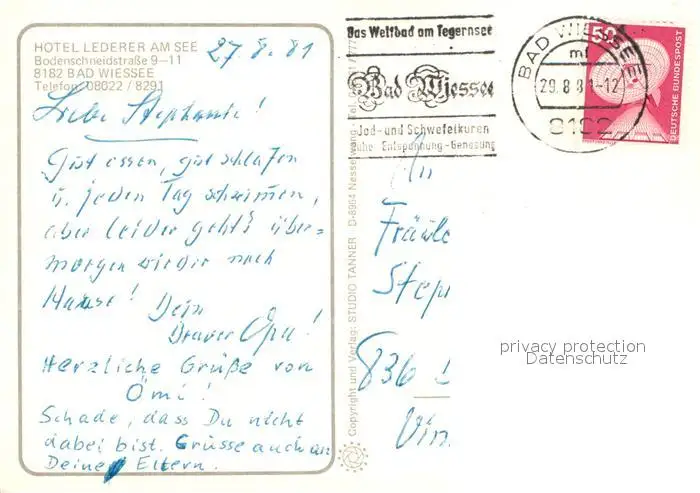 HOTEL LEDERER AM SEE
Bodenschneidstraße 9–11
8182 BAD WIESSEE
Telefon 08022 / 8291
27.8.81
Liebe Stephanie!
Gut essen, gut schlafen
u. jeden Tag schwimmen,
aber leider geht's über=
morgen wieder nach
Hause! Dein
braver Opa!
Herzliche Grüße von
Ömi!
Schade, dass Du nicht
dabei bist. Grüsse auch an
Deine Eltern.
Copyright und Verlag: STUDIO TANNER D-8964 Nesselwang
Das Weltbad am Tegernsee
Bad Wiessee
Jod- und Schwefelkuren
Ruhe-Entspannung-Genesung
BAD WIESSEE
ml
29.8.81-12
8182
50
DEUTSCHE BUNDESPOST
An
Fräule
Step
836
Vin
privacy protection
Datenschutz